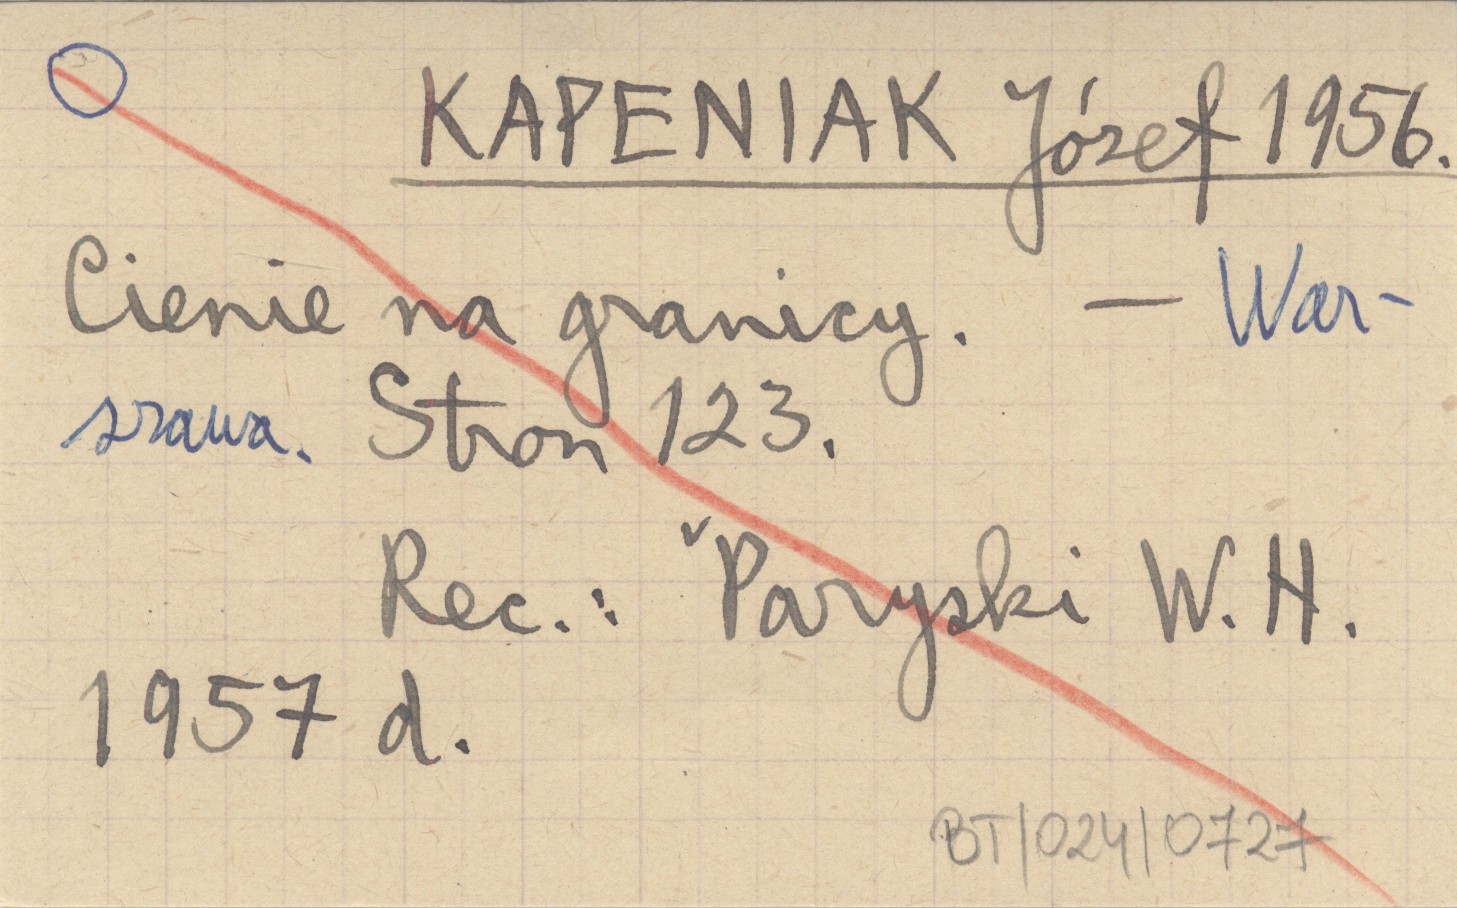 KAPENIAK Józef 1956.
Cienie na granicy. — War-
szawa. Stron 123.
Rec.: ˇParyski W.H.
1957 d.
BT/024/0727